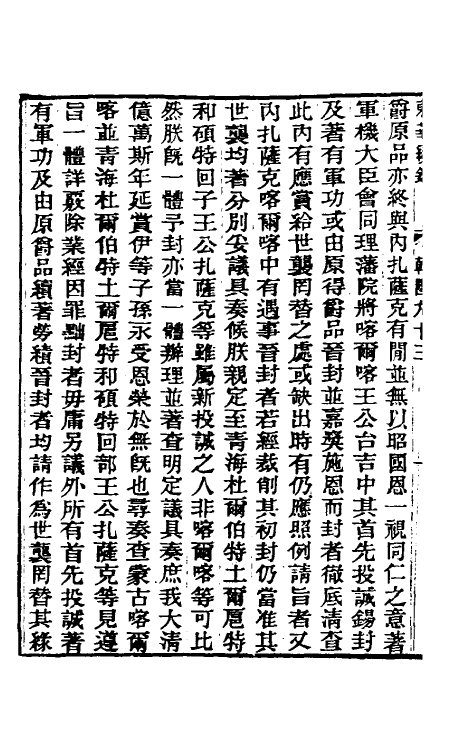 東華續錄　乾隆九十三
爵原品亦終與內扎薩克有閒並無以昭國恩一視同仁之意著
軍機大臣會同理藩院將喀爾喀王公台吉中其首先投誠錫封
及著有軍功或由原得爵品晉封並嘉奬施恩而封者徹底清查
此內有應賞給世襲罔替之處或缺出時有仍應照例請旨者又
內扎薩克喀爾喀中有遇事晉封者若經裁削其初封仍當准其
世襲均著分別妥議具奏候朕親定至青海杜爾伯特土爾扈特
和碩特回子王公扎薩克等雖屬新投誠之人非喀爾喀等可比
然朕旣一體予封亦當一體辦理並著查明定議具奏庶我大清
億萬斯年延賞伊等子孫永受恩榮於無旣也尋奏查蒙古喀爾
喀並青海杜爾伯特土爾扈特和碩特回部王公扎薩克等見遵
旨一體詳覈除業經因罪黜封者毋庸另議外所有首先投誠著
有軍功及由原爵品續著勞績晉封者均請作為世襲罔替其緣